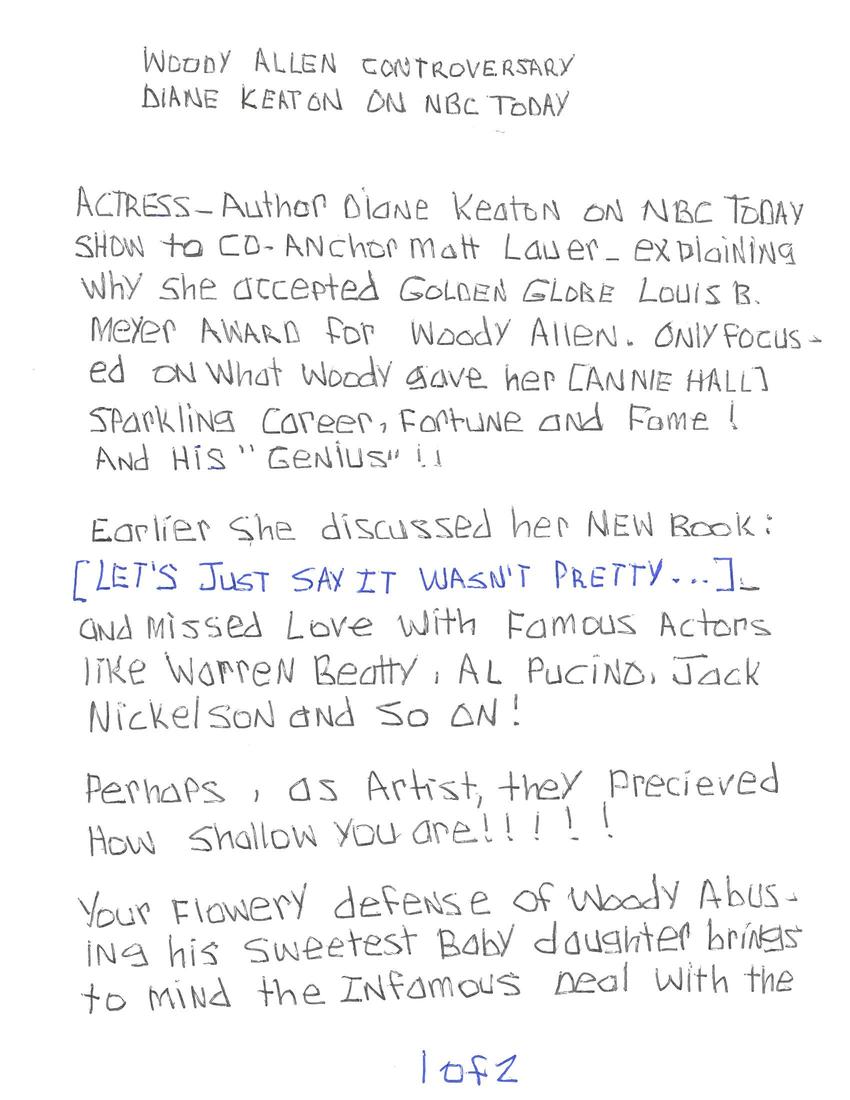 WOODY ALLEN CONTROVERSARY
DIANE KEATON ON NBC TODAY
ACTRESS - Author Diane Keaton ON NBC TODAY
SHOW to CO-ANchor matt Lauer - explaining
Why she accepted GOLDEN GLOBE LOUIS B.
Meyer AWARD for Woody Allen. ONLY FOCUS-
ed ON What Woody gave her [ANNIE HALL]
Sparkling Career, Fortune and Fame!
And His "GeNius" !!
Earlier She discussed her NEW Book:
[LET'S JUST SAY IT WASN'T PRETTY...]-
and Missed Love With Famous Actors
like Warren Beatty, AL PuciNO, Jack
NickelsoN and so ON!
Perhaps, as Artist, they precieved
How Shallow You are!!!!!
Your Flowery defense of Woody Abus-
ing his sweetest Baby daughter brings
to mind the INfamous Deal with the
1 of 2